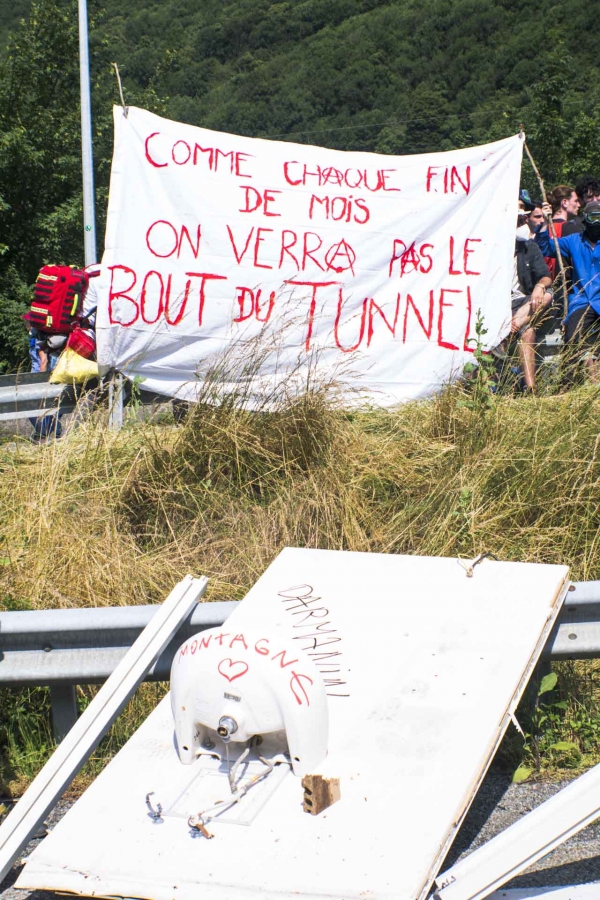 COMME CHAQUE FIN
DE MOIS
ON VERRA PAS LE
BOUT DU TUNNEL
DARMANIN
MONTAGNE